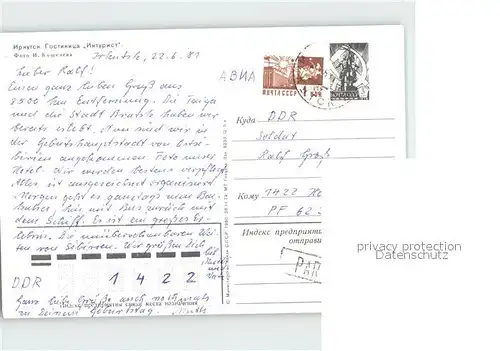 Иркутск Гостиница „Интурист"
Фото И. Бешелева
Irkutsk, 22.6.81
Lieber Ralf!
АВИА
Einen ganz lieben Gruß aus
8500 km Entfernung. Die Taiga
und die Stadt Bratsk haben wir
bereits erlebt. Nun sind wir in
der Gebietshauptstadt von Ost-
sibirien angekommen. Foto unser
Hotel. Wir werden bestens verpflegt
Alles ist ausgezeichnet organisiert.
Morgen geht es ganztags zum Bai-
kalsee, hin mit Bus zurück mit
dem Schiff. Es ist ein großes Er-
lebnis. Die unüberschaubaren Wei-
ten von Sibirien. Wir grüßen Dich
ПОЧТА СССР
Куда DDR
Soldat
Ralf Groß
Кому 1422
PF 62
Индекс предприятия
отправи
privacy protection
Datenschutz
DDR 1422
Ganz liebe Grüße auch nochmals
Индекс предприятия связи места назначения
zu Deinem Geburtstag. Mutti